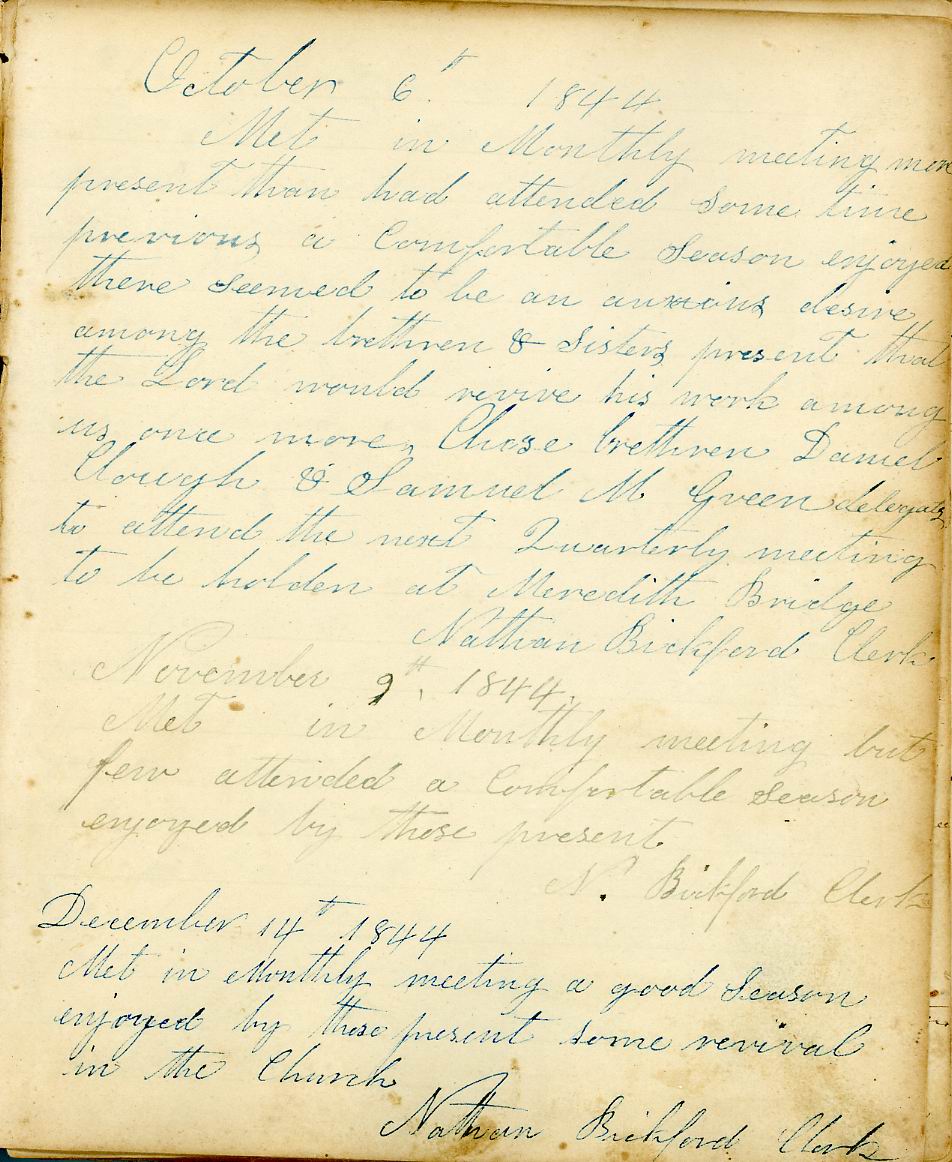 October 6th 1844
Met in Monthly meeting more
present than had attended some time
previous a Comfortable Season enjoyed
there seemed to be an anxious desire
among the brethren & Sisters present that
the Lord would revive his work among
us once more, Chose brethren Daniel
Clough & Samuel M. Green delegates
to attend the next Quarterly meeting
to be holden at Meredith Bridge
Nathan Bickford Clerk
November 9th, 1844,
Met in Monthly meeting but
few attended a Comfortable Season
enjoyed by those present
N. Bickford Clerk
December 14th 1844
Met in Monthly meeting a good Season
enjoyed by those present some revival
in the Church
Nathan Bickford Clerk